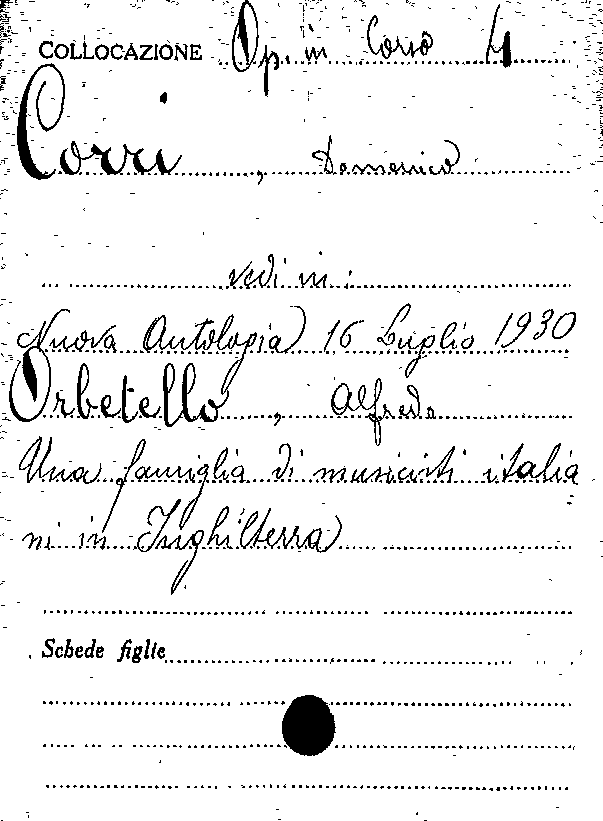 COLLOCAZIONE Op. in Corso 4
Corri, Domenico
vedi in:
Nuova Antologia 16 Luglio 1930
Orbetello, Alfredo
Una famiglia di musicisti italia
ni in Inghilterra
Schede figlie